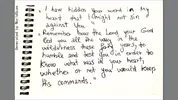 "I have hidden your word in my
heart that I might not sin
against you."
"Remember how the Lord your God
led you all the way in the
wilderness these forty years, to
humble and test you in order to
know what was in your heart,
whether or not you would keep
His commands."